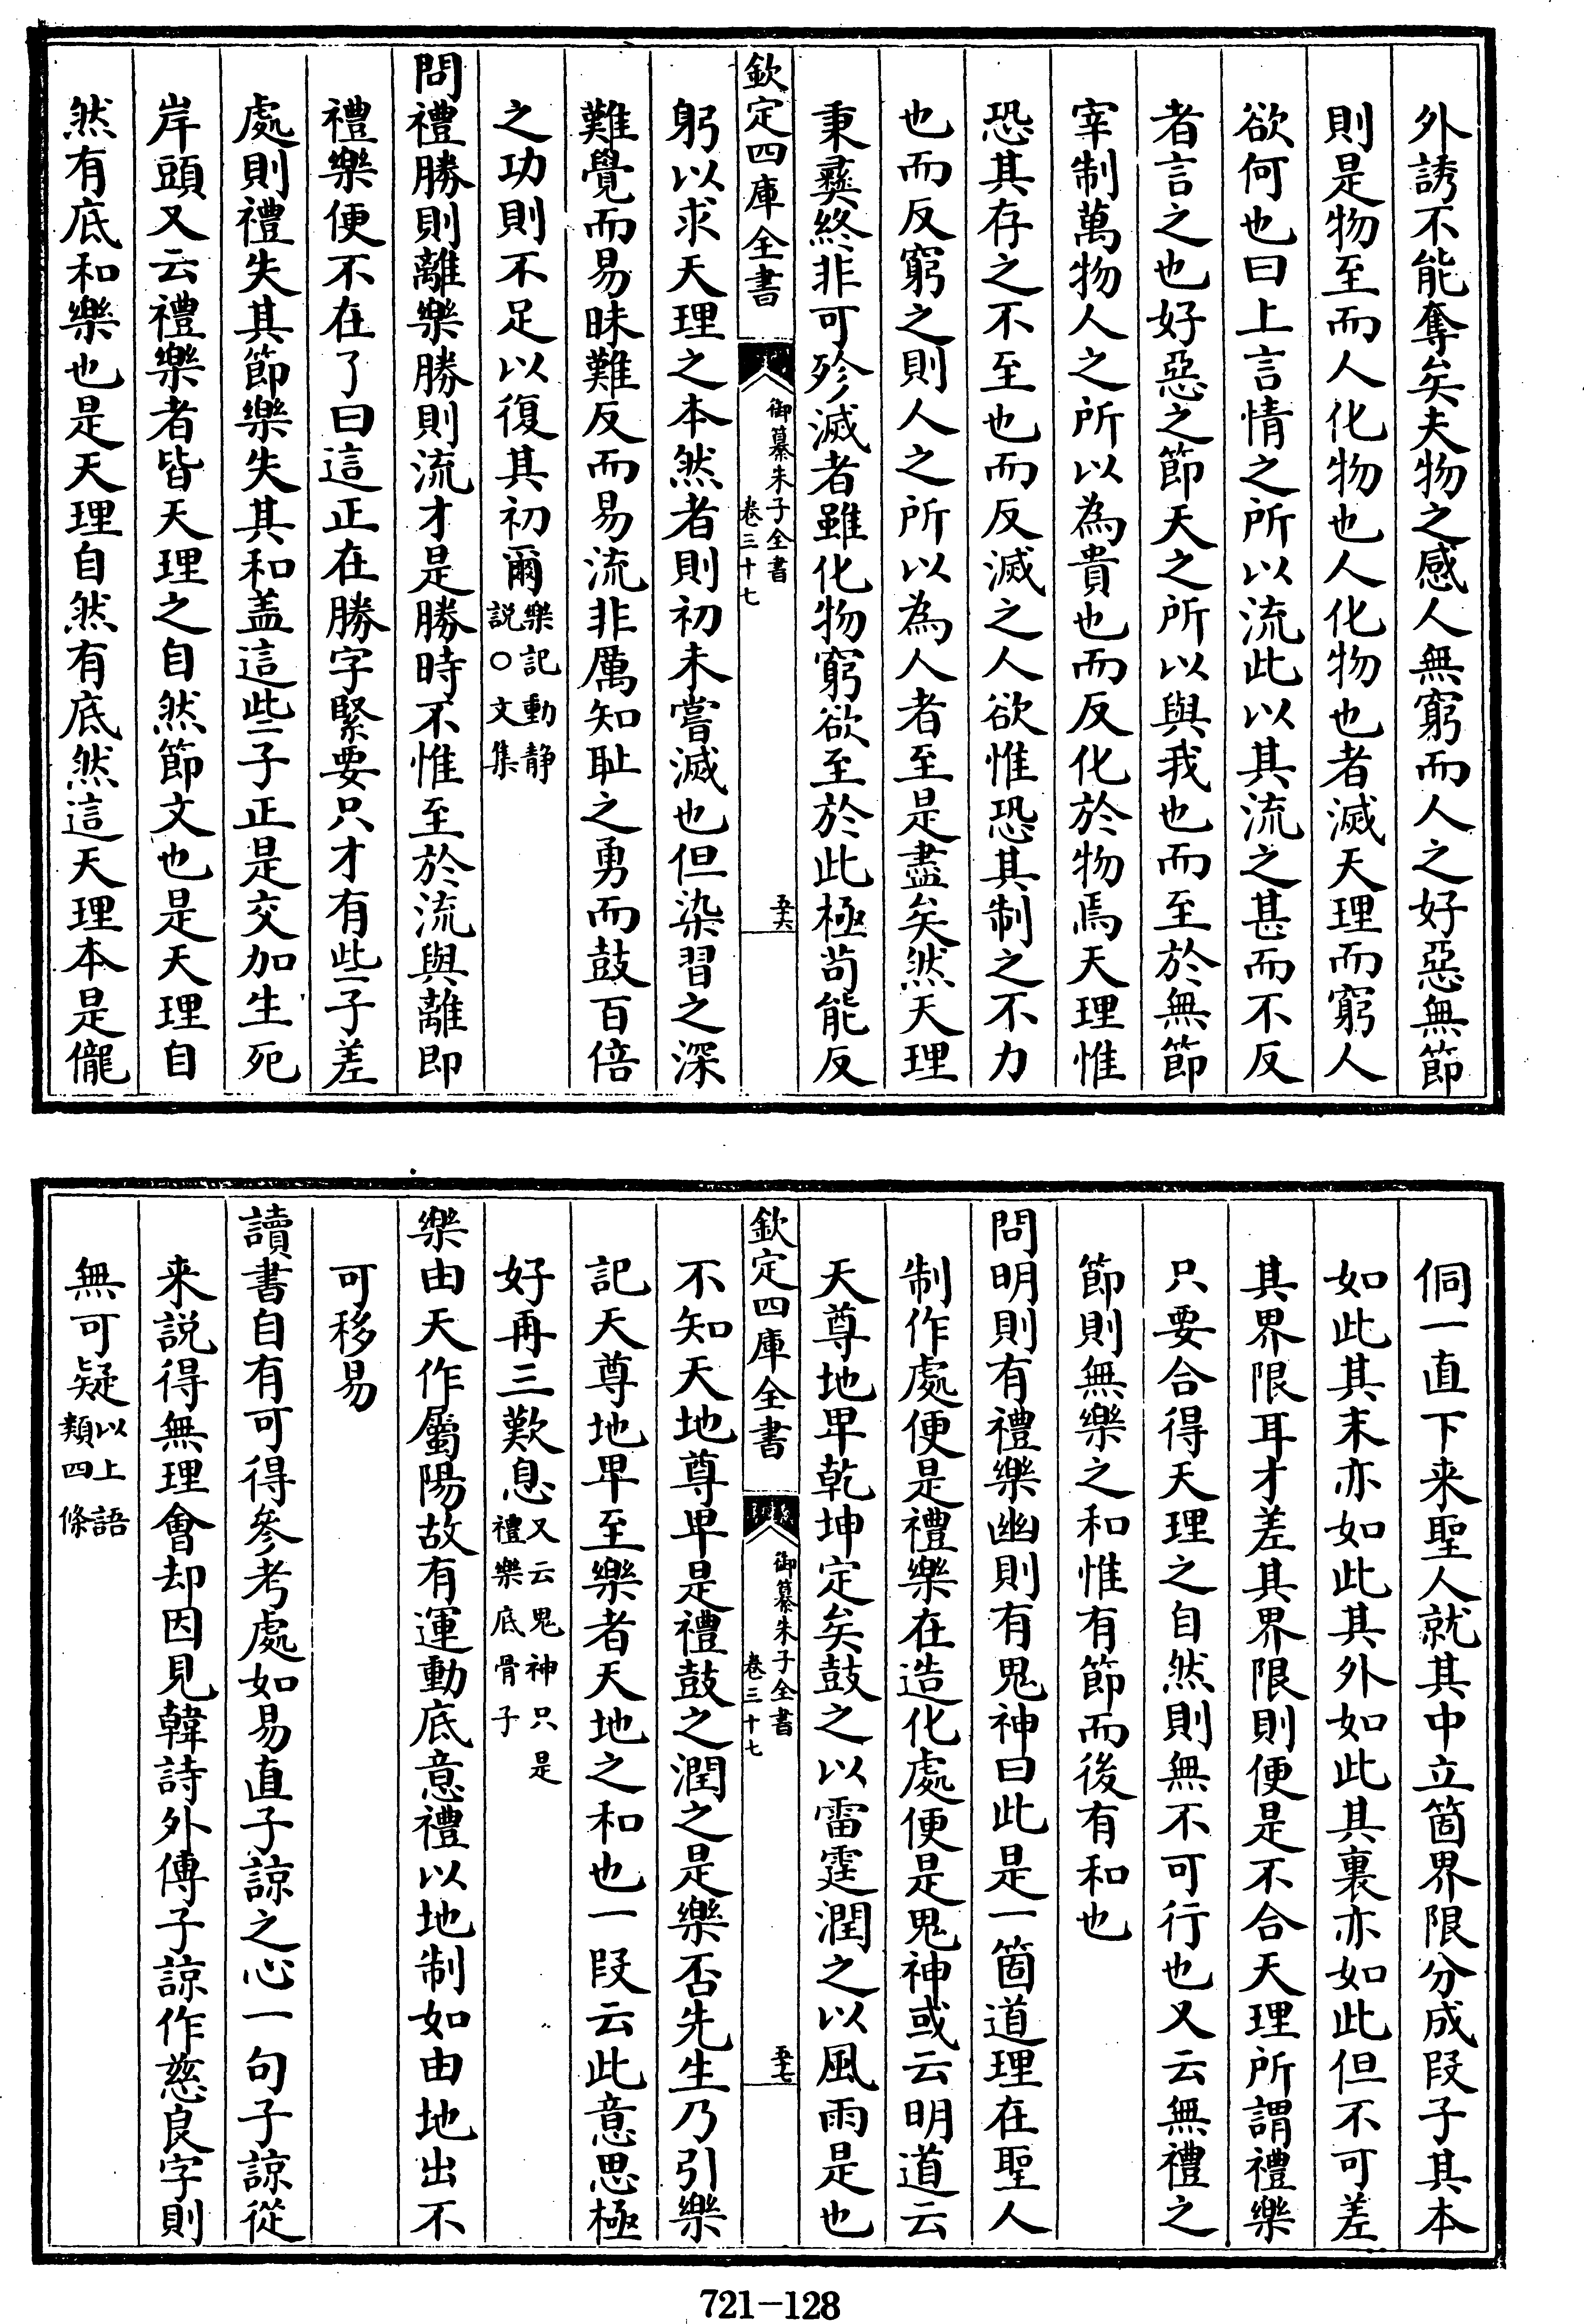 外誘不能奪矣夫物之感人無窮而人之好惡無節
則是物至而人化物也人化物也者滅天理而窮人
欲何也曰上言情之所以流此以其流之甚而不反
者言之也好惡之節天之所以與我也而至於無節
宰制萬物人之所以為貴也而反化於物焉天理惟
恐其存之不至也而反滅之人欲惟恐其制之不力
也而反窮之則人之所以為人者至是盡矣然天理
秉彝終非可殄滅者雖化物窮欲至於此極苟能反
欽定四庫全書
御纂朱子全書
卷三十七
五六
躬以求天理之本然者則初未嘗滅也但染習之深
難覺而易昧難反而易流非厲知恥之勇而鼓百倍
之功則不足以復其初爾樂記動静
説○文集
問禮勝則離樂勝則流才是勝時不惟至於流與離即
禮樂便不在了曰這正在勝字緊要只才有些子差
處則禮失其節樂失其和盖這些子正是交加生死
岸頭又云禮樂者皆天理之自然節文也是天理自
然有底和樂也是天理自然有底然這天理本是儱
侗一直下来聖人就其中立箇界限分成段子其本
如此其末亦如此其外如此其裏亦如此但不可差
其界限耳才差其界限則便是不合天理所謂禮樂
只要合得天理之自然則無不可行也又云無禮之
節則無樂之和惟有節而後有和也
問明則有禮樂幽則有鬼神曰此是一箇道理在聖人
制作處便是禮樂在造化處便是鬼神或云明道云
天尊地卑乾坤定矣鼓之以雷霆潤之以風雨是也
欽定四庫全書
御纂朱子全書
卷三十七
五七
不知天地尊卑是禮鼓之潤之是樂否先生乃引樂
記天尊地卑至樂者天地之和也一段云此意思極
好再三歎息又云鬼神只是
禮樂底骨子
樂由天作屬陽故有運動底意禮以地制如由地出不
可移易
讀書自有可得參考處如易直子諒之心一句子諒從
来説得無理會却因見韓詩外傳子諒作慈良字則
無可疑以上語
類四條
721-128